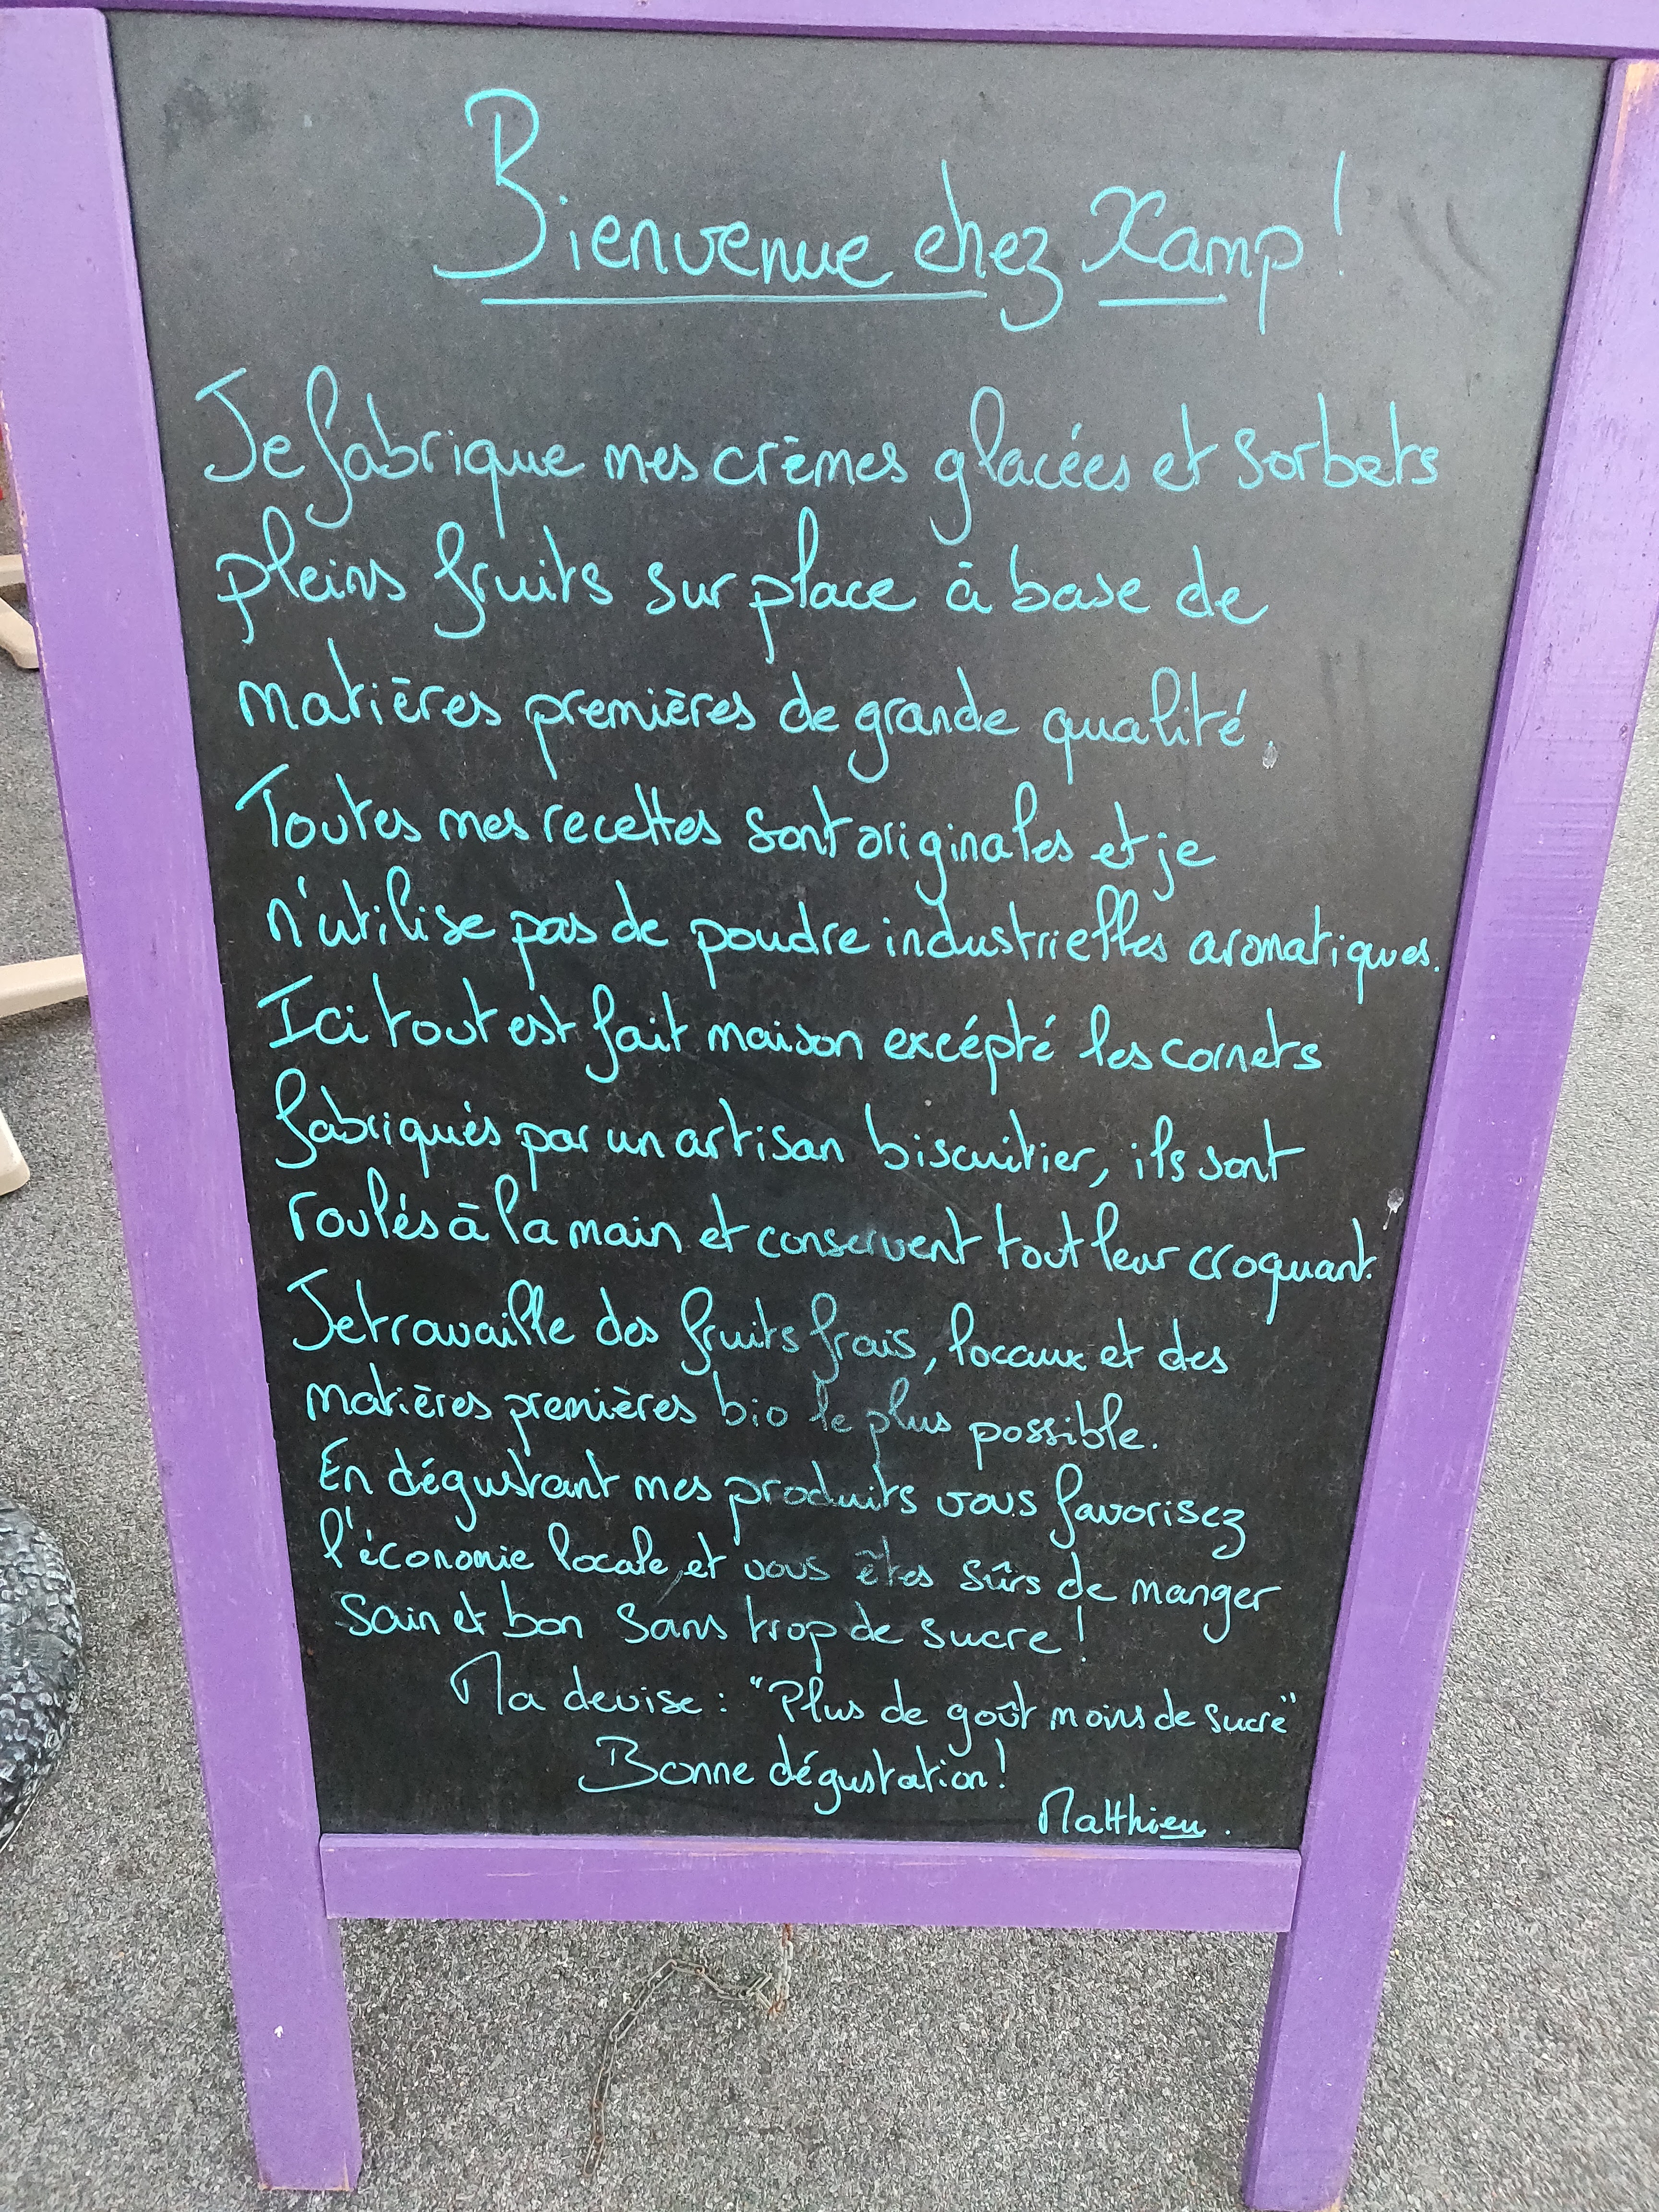 Bienvenue chez Xamp !
Je fabrique mes crèmes glacées et sorbets
pleins fruits sur place à base de
matières premières de grande qualité.
Toutes mes recettes sont originales et je
n'utilise pas de poudre industrielles aromatiques.
Ici tout est fait maison excépté les cornets
fabriqués par un artisan biscuitier, ils sont
roulés à la main et conservent tout leur croquant.
Je travaille des fruits frais, locaux et des
matières premières bio le plus possible.
En dégustant mes produits vous favorisez
l'économie locale, et vous êtes sûrs de manger
sain et bon sans trop de sucre !
Ma devise : "Plus de goût moins de sucre"
Bonne dégustation !
Matthieu.